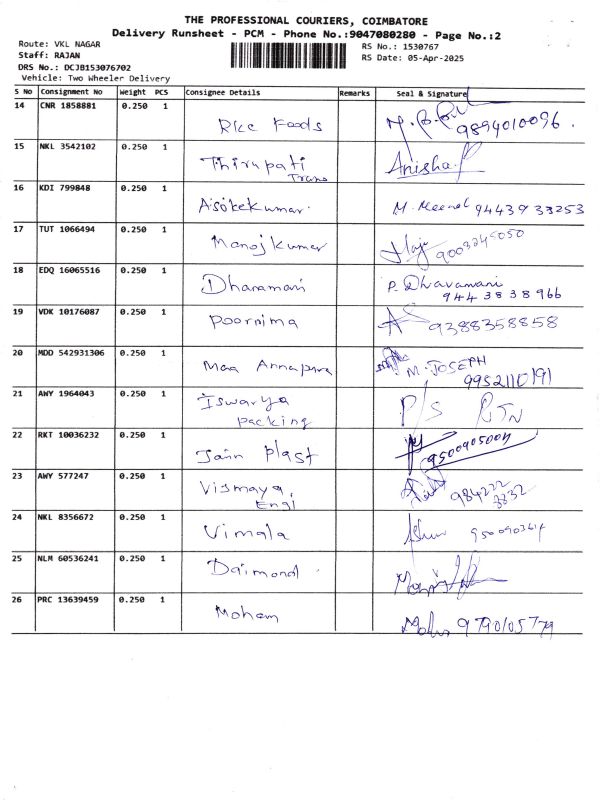 THE PROFESSIONAL COURIERS, COIMBATORE
Delivery Runsheet - PCM - Phone No.:9047080280 - Page No.:2
Route: VKL NAGAR
RS No.: 1530767
Staff: RAJAN
RS Date: 05-Apr-2025
DRS No.: DCJB153076702
Vehicle: Two Wheeler Delivery
S No Consignment No Weight PCS Consignee Details Remarks Seal & Signature
14 CNR 1858881 0.250 1
Rice Foods 9894010096.
15 NKL 3542102 0.250 1
Thirupati Anisha.P
Trans
16 KDI 799848 0.250 1
Asokekumar. M. Meenal 9443933253
17 TUT 1066494 0.250 1
Manojkumar 9003045050
18 EDQ 16065516 0.250 1
Dharamani P. Dhavamani
9443838966
19 VDK 10176087 0.250 1
Poornima 9388358858
20 MDD 542931306 0.250 1
Maa Annapura M. JOSEPH
9952110191
21 AWY 1964043 0.250 1
Iswarya P/S RTN
packing
22 RKT 10036232 0.250 1
Jain Plast 9500905004
23 AWY 577247 0.250 1
Vismaya 984222
Engi 3832
24 NKL 8356672 0.250 1
Vimala
25 NLM 60536241 0.250 1
Daimond
26 PRC 13639459 0.250 1
Moham 9790105779